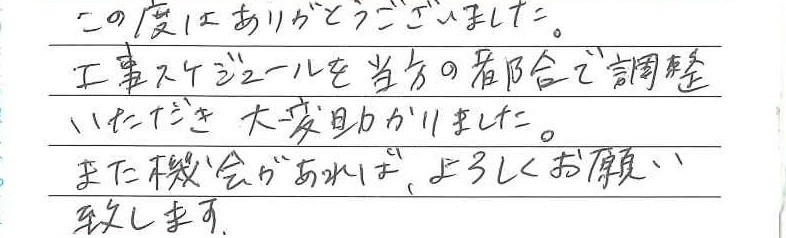 この度はありがとうございました。
工事スケジュールを当方の都合で調整
いただき 大変助かりました。
また機会があれば、よろしくお願い
致します。